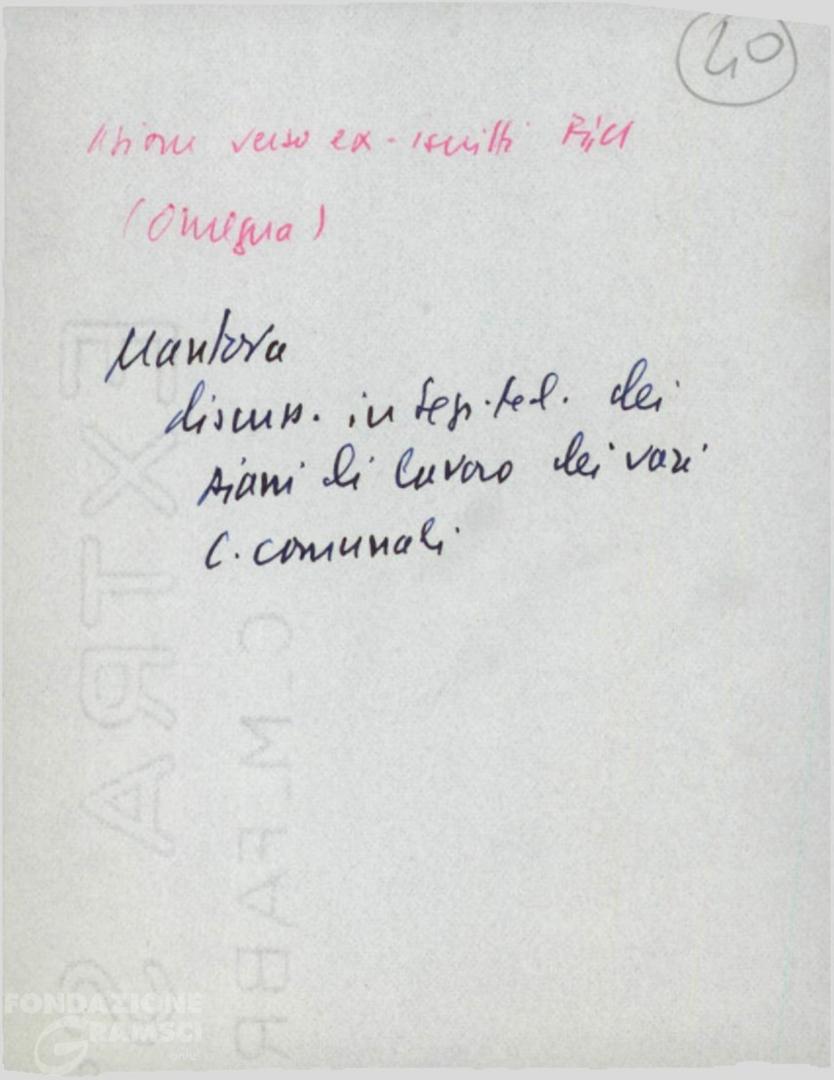 40
Azione verso ex-iscritti
(Omegna)
Mantova
discuss. in segr. fed. dei
piani di lavoro dei vari
C. comunali
EXTRA
C.M. FABR
FONDAZIONE
GRAMSCI